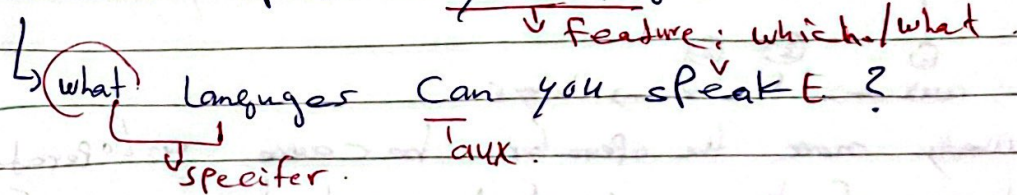 feature: which/what
what Languges Can you speak t ?
v
aux.
specifer.